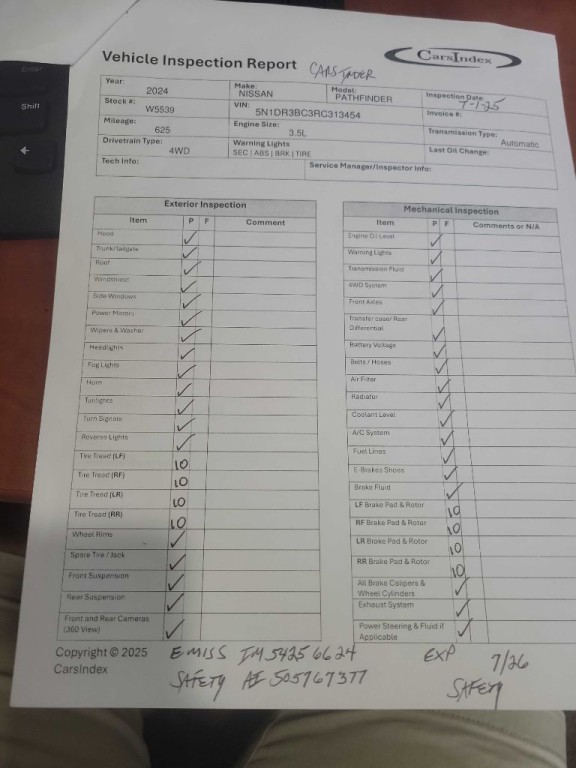 Enter
Shift
Vehicle Inspection Report
CarsIndex
Year: 2024 Make: NISSAN Model: PATHFINDER Inspection Date: 7-1-25
Stock #: W5539 VIN: 5N1DR3BC3RC313454 Invoice #:
Mileage: 625 Engine Size: 3.5L Transmission Type: Automatic
Drivetrain Type: 4WD Warning Lights SEC | ABS | BRK | TIRE Last Oil Change:
Tech Info: Service Manager/Inspector Info:
Exterior Inspection
Item P F Comment
Hood ✓
Trunk/Tailgate ✓
Roof ✓
Windshield ✓
Side Windows ✓
Power Mirrors ✓
Wipers & Washer ✓
Headlights ✓
Fog Lights ✓
Horn ✓
Taillights ✓
Turn Signals ✓
Reverse Lights ✓
Tire Tread (LF) 10
Tire Tread (RF) 10
Tire Tread (LR) 10
Tire Tread (RR) 10
Wheel Rims ✓
Spare Tire / Jack ✓
Front Suspension ✓
Rear Suspension ✓
Front and Rear Cameras
(360 View) ✓
Mechanical Inspection
Item P F Comments or N/A
Engine Oil Level ✓
Warning Lights ✓
Transmission Fluid ✓
4WD System ✓
Front Axles ✓
Transfer case/ Rear
Differential ✓
Battery Voltage ✓
Belts / Hoses ✓
Air Filter ✓
Radiator ✓
Coolant Level ✓
A/C System ✓
Fuel Lines ✓
E-Brakes Shoes ✓
Brake Fluid ✓
LF Brake Pad & Rotor 10
RF Brake Pad & Rotor 10
LR Brake Pad & Rotor 10
RR Brake Pad & Rotor 10
All Brake Calipers &
Wheel Cylinders ✓
Exhaust System ✓
Power Steering & Fluid if
Applicable ✓
Copyright © 2025
CarsIndex
EMISS IM 54256624 EXP 7/26
SAFETY AI 505767377 SAFETY